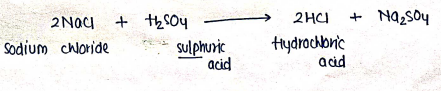 2NaCl + H₂SO₄ ⟶ 2HCl + Na₂SO₄
Sodium chloride sulphuric Hydrochloric
acid acid